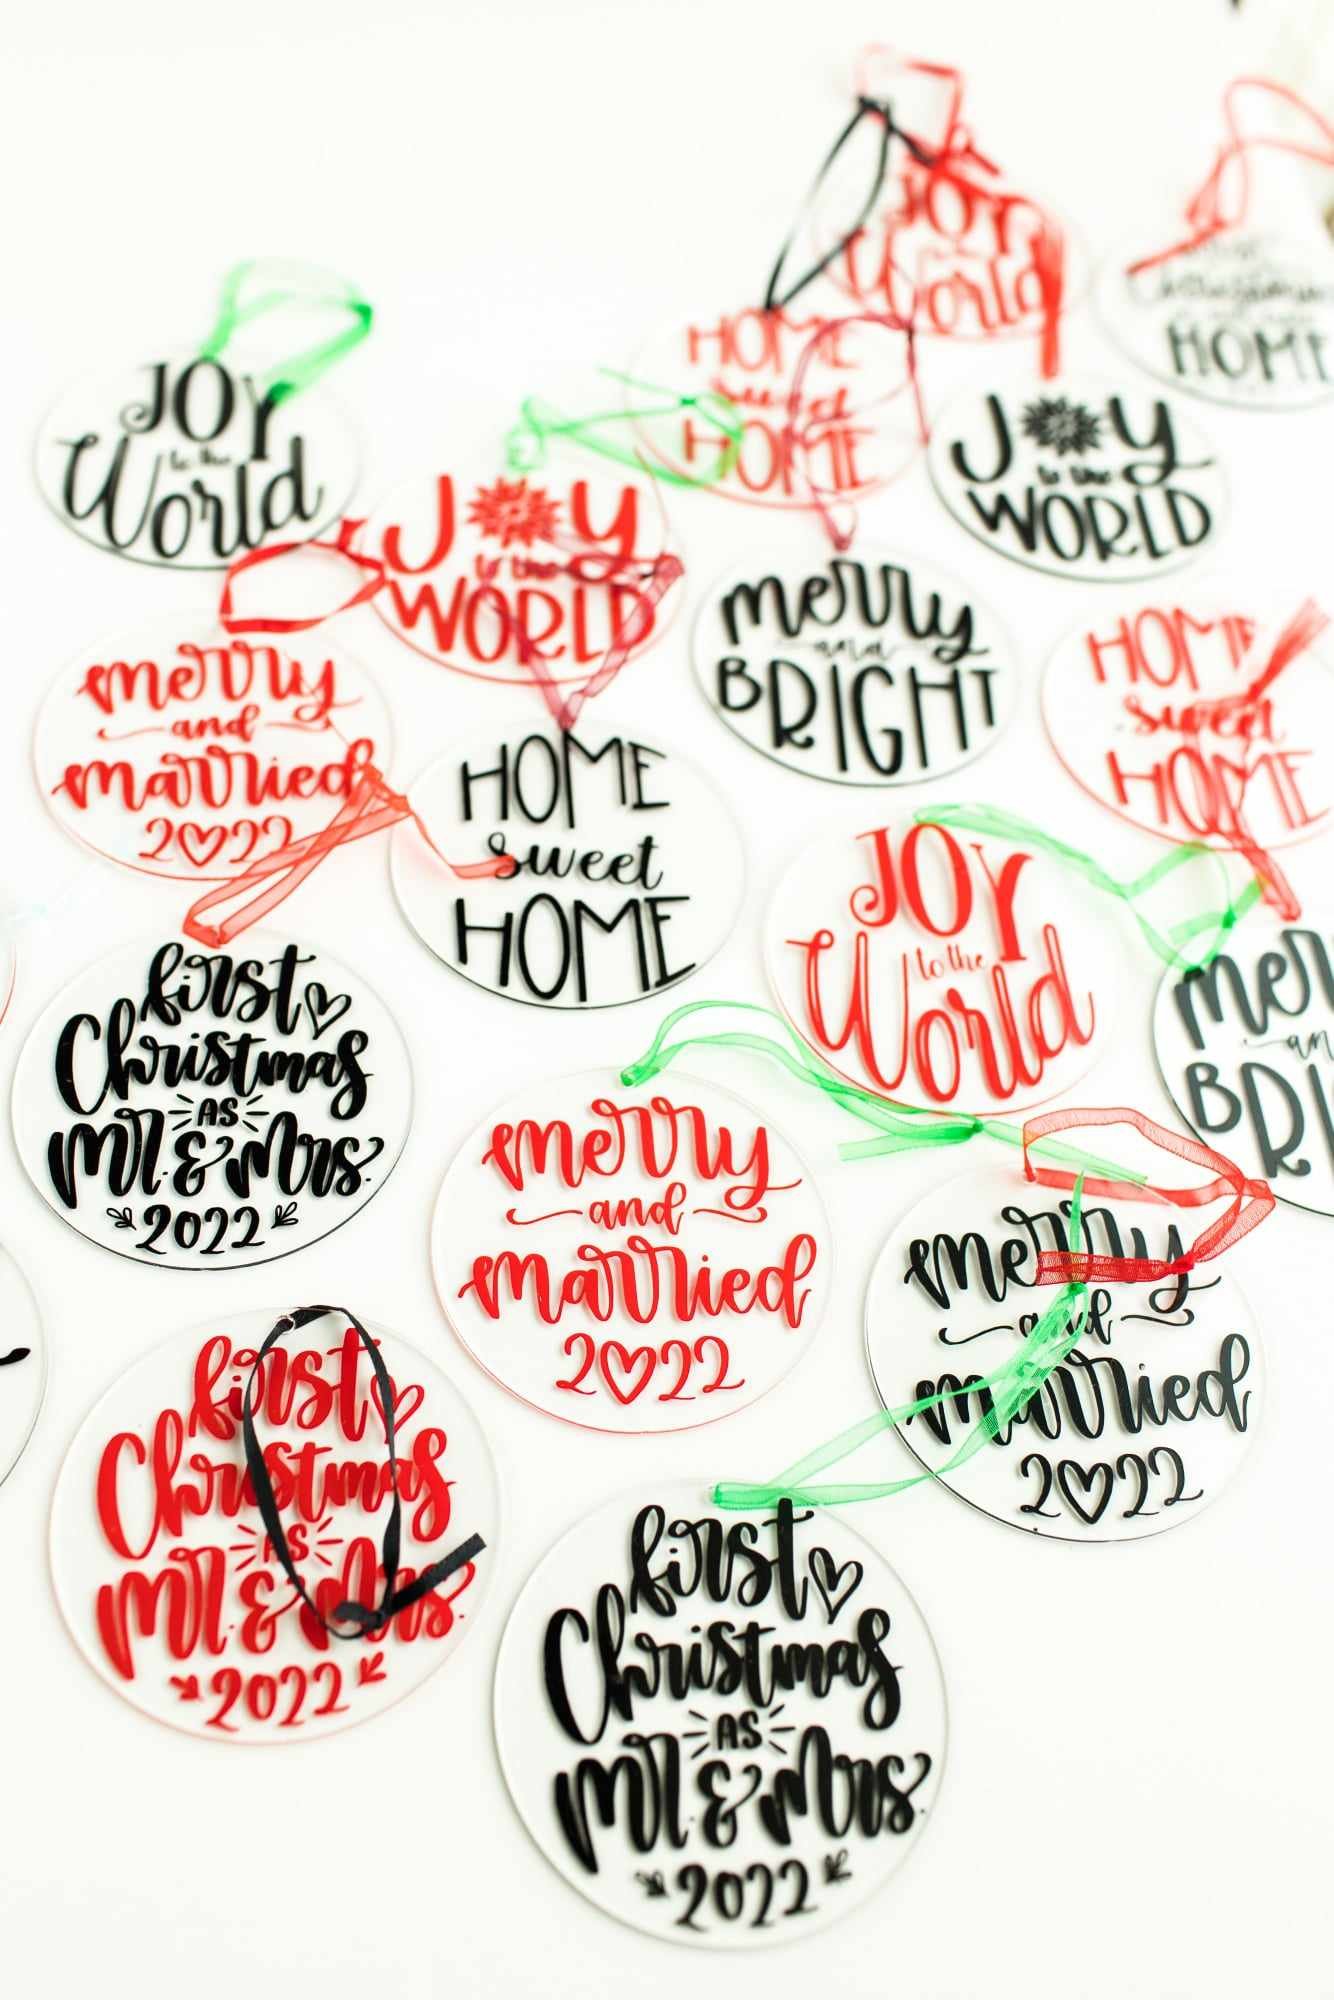 JOY
to the
World
HOME
JOY
to the
World
HOME
sweet
HOME
JOY
to the
WORLD
JOY
to the
WORLD
merry
and
BRIGHT
HOME
sweet
HOME
merry
and
married
2022
HOME
sweet
HOME
JOY
to the
World
first
Christmas
AS
Mr. & Mrs.
2022
merry
and
married
2022
merry
and
married
2022
first
Christmas
AS
Mr. & Mrs.
2022
first
Christmas
AS
Mr. & Mrs.
2022